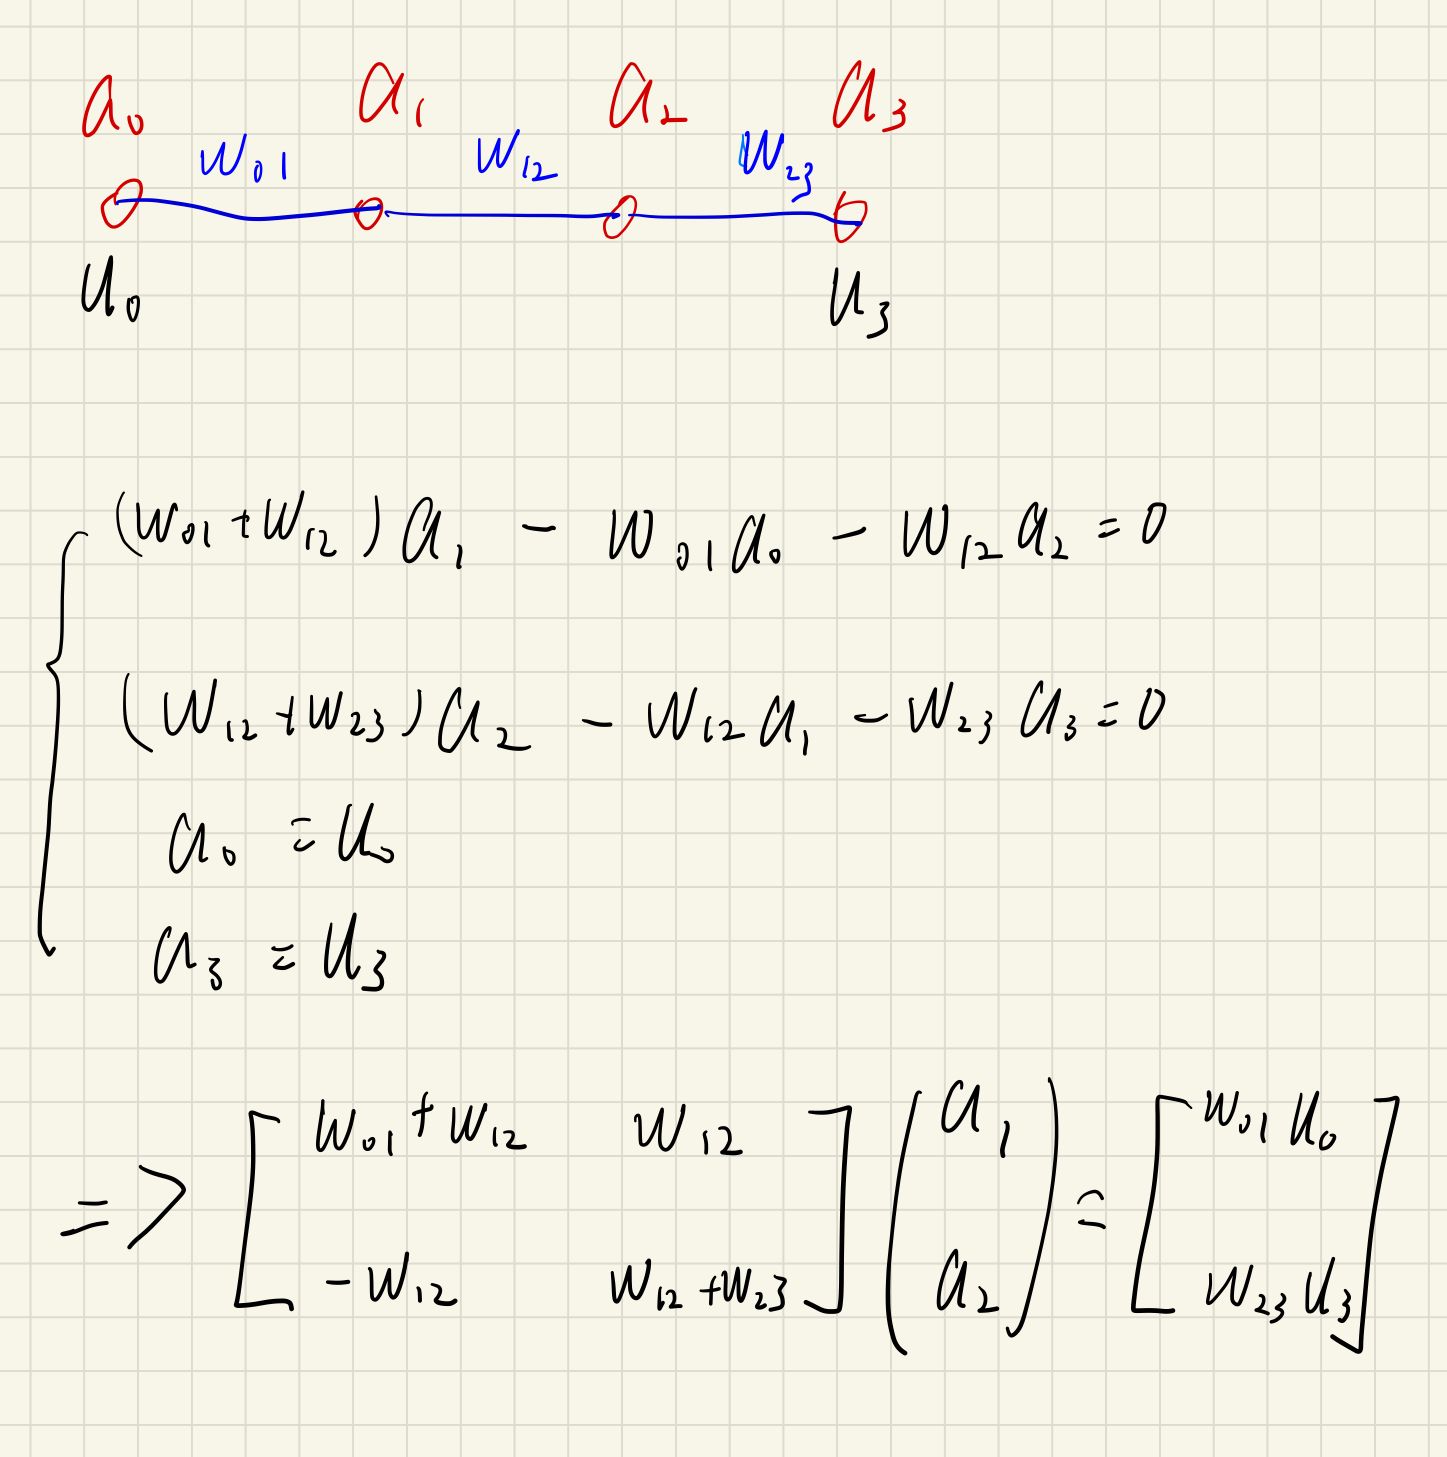 a₀ a₁ a₂ a₃
w₀₁ w₁₂ w₂₃
u₀ u₃
(w₀₁+w₁₂)a₁ - w₀₁a₀ - w₁₂a₂ = 0
(w₁₂+w₂₃)a₂ - w₁₂a₁ - w₂₃a₃ = 0
a₀ = u₀
a₃ = u₃
=> [ w₀₁+w₁₂ w₁₂ ; -w₁₂ w₁₂+w₂₃ ] ( a₁ ; a₂ ) = [ w₀₁u₀ ; w₂₃u₃ ]